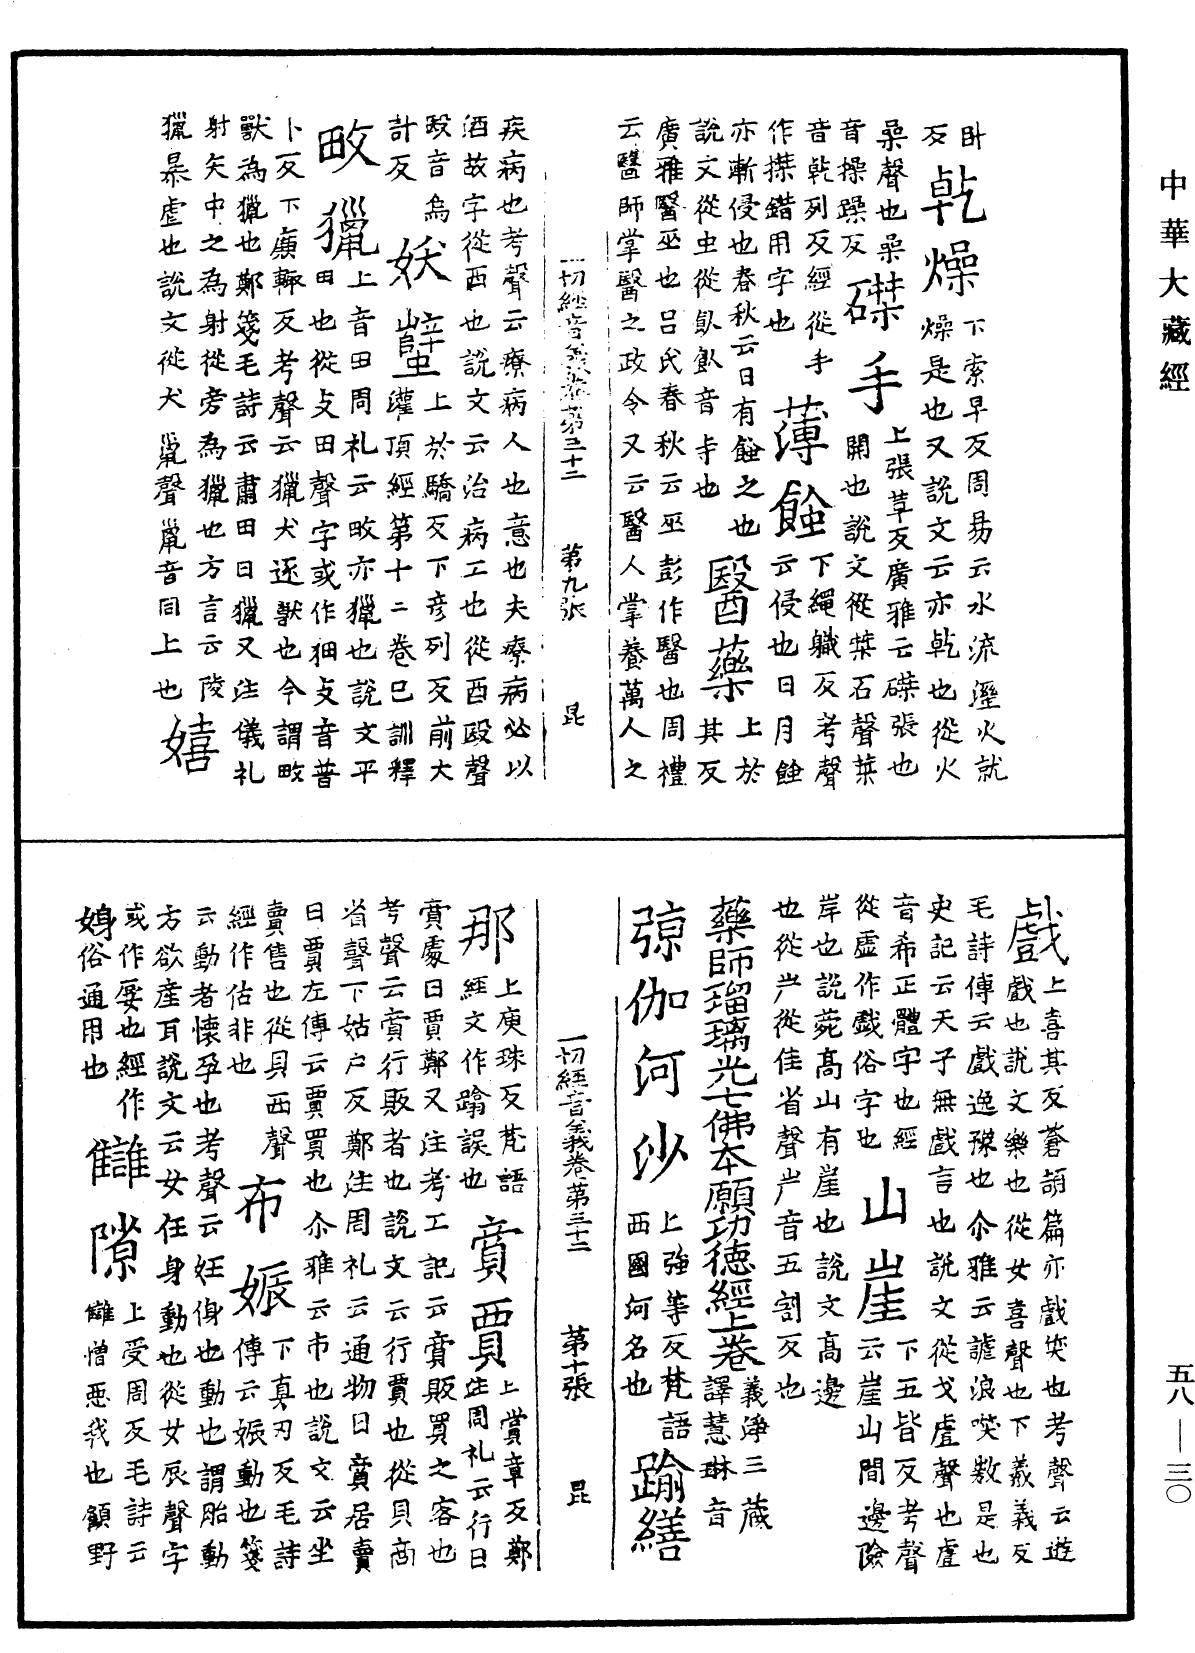 中華大藏經
卧反乾燥下索早反周易云水流溼火就
燥是也又說文云亦乾也從火
喿聲也喿
音操躁反磔手上張革反廣雅云磔張也
開也說文從桀石聲桀
音乾列反經從手
作搩錯用字也薄餘下繩職反考聲
云侵也日月蝕
亦漸侵也春秋云日有蝕之也
說文從虫從飤飤音寺也醫藥上於
其反
廣雅醫巫也呂氏春秋云巫彭作醫也周禮
云醫師掌醫之政令又云醫人掌養萬人之
一切經音義卷第三十二 第九張 昆
疾病也考聲云療病人也意也夫療病必以
酒故字從酉也說文云治病工也從酉殹聲
殹音烏
計反妖蠥上於驕反下彥列反前大
灌頂經第十二卷已訓釋
畋獵上音田周礼云畋亦獵也說文平
田也從攴田聲字或作畑攴音普
卜反下廉輒反考聲云獵犬逐獸也今謂畋
獸為獵也鄭箋毛詩云肅田日獵又注儀礼
射矢中之為射從旁為獵也方言云陵
獵暴虐也說文從犬巤聲巤音同上也嬉
戲上喜其反蒼頡篇亦戲笑也考聲云遊
戲也說文樂也從女喜聲也下羲義反
毛詩傳云戲逸豫也尒雅云謔浪唉敖是也
史記云天子無戲言也說文從戈䖒聲也䖒
音希正體字也經
從虛作戯俗字也山崖下五皆反考聲
云崖山間邊險
岸也說菀高山有崖也說文高邊
也從屵從佳省聲屵音五割反也
藥師瑠璃光七佛本願功德經上卷義淨三藏
譯慧琳音
弶伽河沙上強等反梵語
西國河名也踰繕
那上庾珠反梵語
經文作踰誤也賷賈上賞章反鄭
注周礼云行曰
賷處曰賈鄭又注考工記云賷販買之客也
考聲云賷行販者也說文云行賈也從貝商
省聲下姑户反鄭注周礼云通物曰賷居賣
曰賈左傳云賈買也尒雅云市也說文云坐
賣售也從貝西聲
經作估非也布娠下真刃反毛詩
傳云娠動也箋
云動者懷孕也考聲云妊身也動也謂胎動
方欲產耳說文云女任身動也從女辰聲字
或作㛛也經作
娚俗通用也讎隙上受周反毛詩云
讎憎惡我也顧野
一切經音義卷第三十二 第十張 昆
五八—三〇